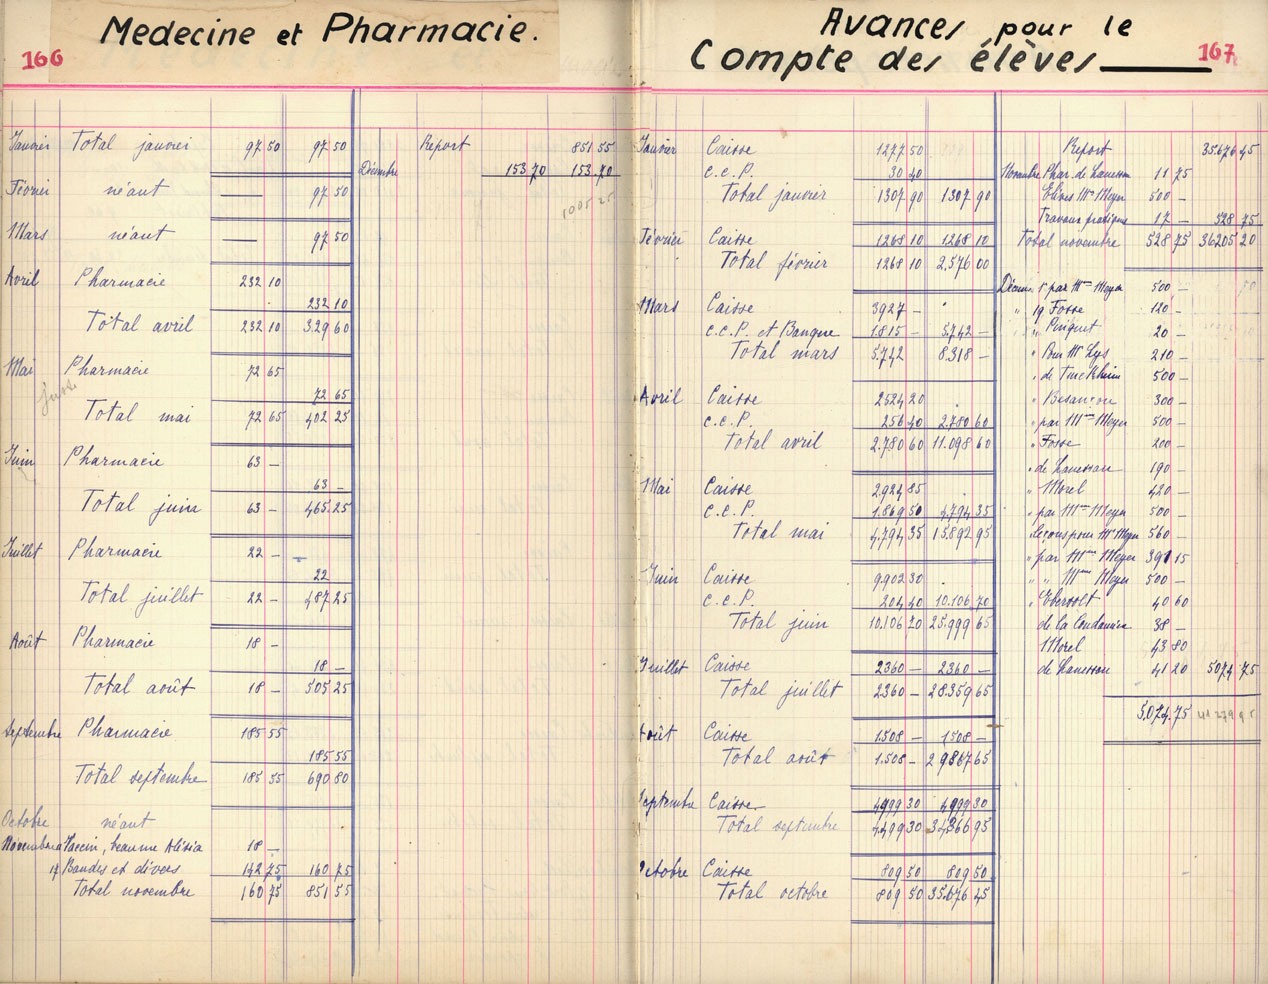 Medecine et Pharmacie.
166
Janvier Total janvier 97 50 97 50
Février néant — 97 50
Mars néant — 97 50
Avril Pharmacie 232 10
232 10
Total avril 232 10 329 60
Mai Pharmacie 72 65
72 65
Total mai 72 65 402 25
Juin Pharmacie 63 —
63 —
Total juin 63 — 465 25
Juillet Pharmacie 22 —
22
Total juillet 22 — 487 25
Août Pharmacie 18 —
18 —
Total août 18 — 505 25
Septembre Pharmacie 185 55
185 55
Total septembre 185 55 690 80
Octobre néant
Novembre Vaccin, beaume Alésia 18 —
Bandes et divers 142 75 160 75
Total novembre 160 75 851 55
Report 851 55
Décembre 153 70 153 70
1005 25
Avances pour le
Compte des élèves
167
Janvier Caisse 1277 50
c.c.P. 30 40
Total janvier 1307 90 1307 90
Février Caisse 1268 10 1268 10
Total février 1268 10 2.576 00
Mars Caisse 3927 —
c.c.P. et Banque 1.815 — 5.742 —
Total mars 5.742 8.318 —
Avril Caisse 2524 20
c.c.P. 256 40 2.780 60
Total avril 2.780 60 11.098 60
Mai Caisse 2.924 85
c.c.P. 1.869 50 4.794 35
Total mai 4.794 35 15.892 95
Juin Caisse 9.902 30
c.c.P. 204 40 10.106 70
Total juin 10.106 70 25.999 65
Juillet Caisse 2360 — 2360 —
Total juillet 2360 — 28.359 65
Août Caisse 1.508 — 1.508 —
Total août 1.508 — 29867 65
Septembre Caisse 4999 30 4999 30
Total septembre 4.999 30
Octobre Caisse 809 50 809 50
Total octobre 809 50 35.676 45
Report 35.676 45
Novembre Phar. de Lanessan 11 75
Elèves Mme Meyer 500 —
Travaux pratiques 17 — 528 75
Total novembre 528 75 36205 20
Décem. par Mme Meyer 500 —
" 19 Fosse 120 —
" 20 —
" Pour Mr Lys 210 —
" de Turckheim 500 —
" Besançon 300 —
" par Mme Meyer 500 —
" Fosse 200 —
" de Lanessan 190 —
" Morel 420 —
" par Mme Meyer 500 —
Leçons pour Mr Meyer 560 —
" par Mme Meyer 391 15
" " Mme Meyer 500 —
" Ebersolt 40 60
de la Coudamine 38 —
Morel 43 80
de Lanessan 41 20 5074 75
5.074.75 41 279 95